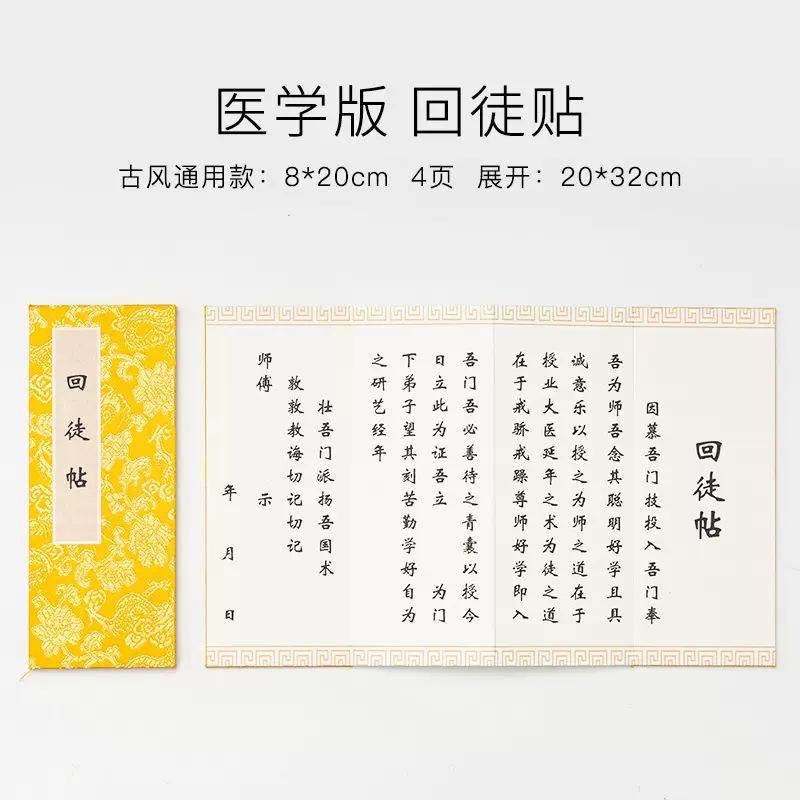 医学版 回徒贴
古风通用款：8*20cm 4页 展开：20*32cm
回徒帖
回徒帖
因慕吾门技投入吾门奉
吾为师吾念其聪明好学且具
诚意乐以授之为师之道在于
授业大医延年之术为徒之道
在于戒骄戒躁尊师好学即入
吾门吾必善待之青囊以授今
日立此为证吾立 为门
下弟子望其刻苦勤学好自为
之研艺经年
壮吾门派扬吾国术
敦敦教诲切记切记
师傅 示
年 月 日